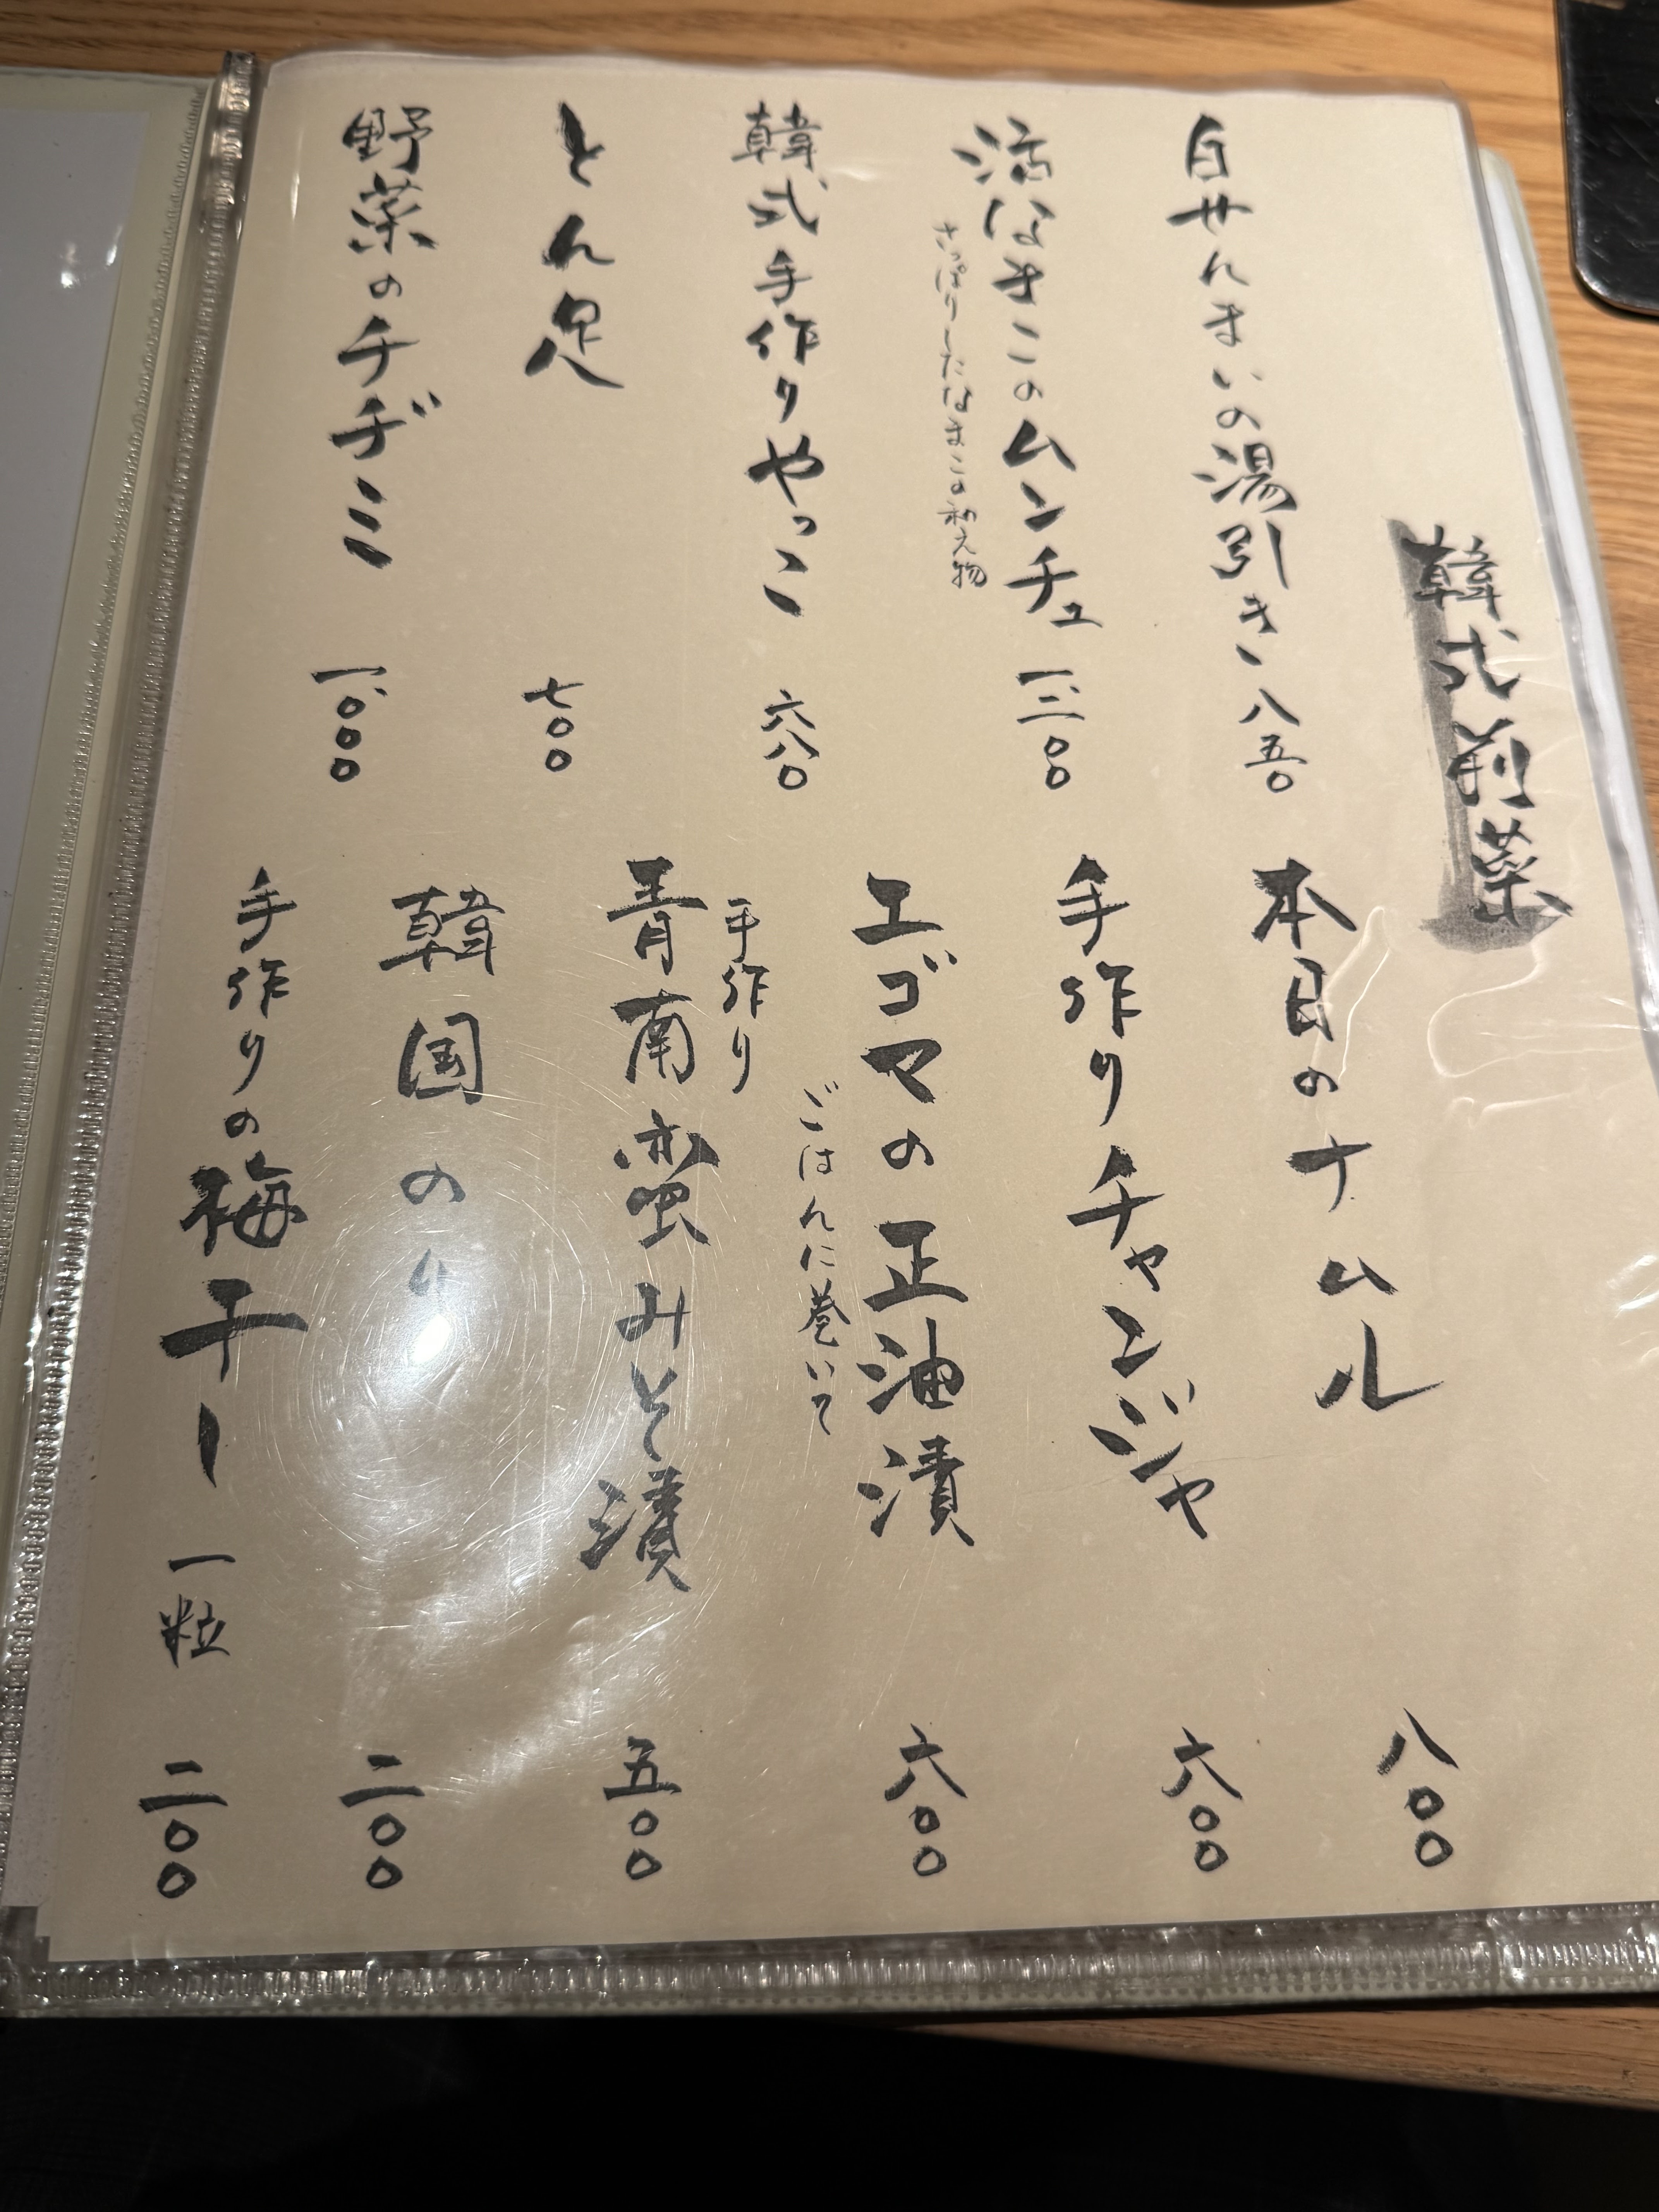 韓式前菜
白せんまいの湯引き 八五〇
活なまこのムンチュ 一、二〇〇
さっぱりしたなまこの和え物
韓式手作りやっこ 六八〇
とん足 七〇〇
野菜のチヂミ 一、〇〇〇
本日のナムル 八〇〇
手作りチャンジャ 六〇〇
エゴマの正油漬 六〇〇
ごはんに巻いて
手作り
青南蛮みそ漬 五〇〇
韓国のり 二〇〇
手作りの梅干し 一粒 二〇〇